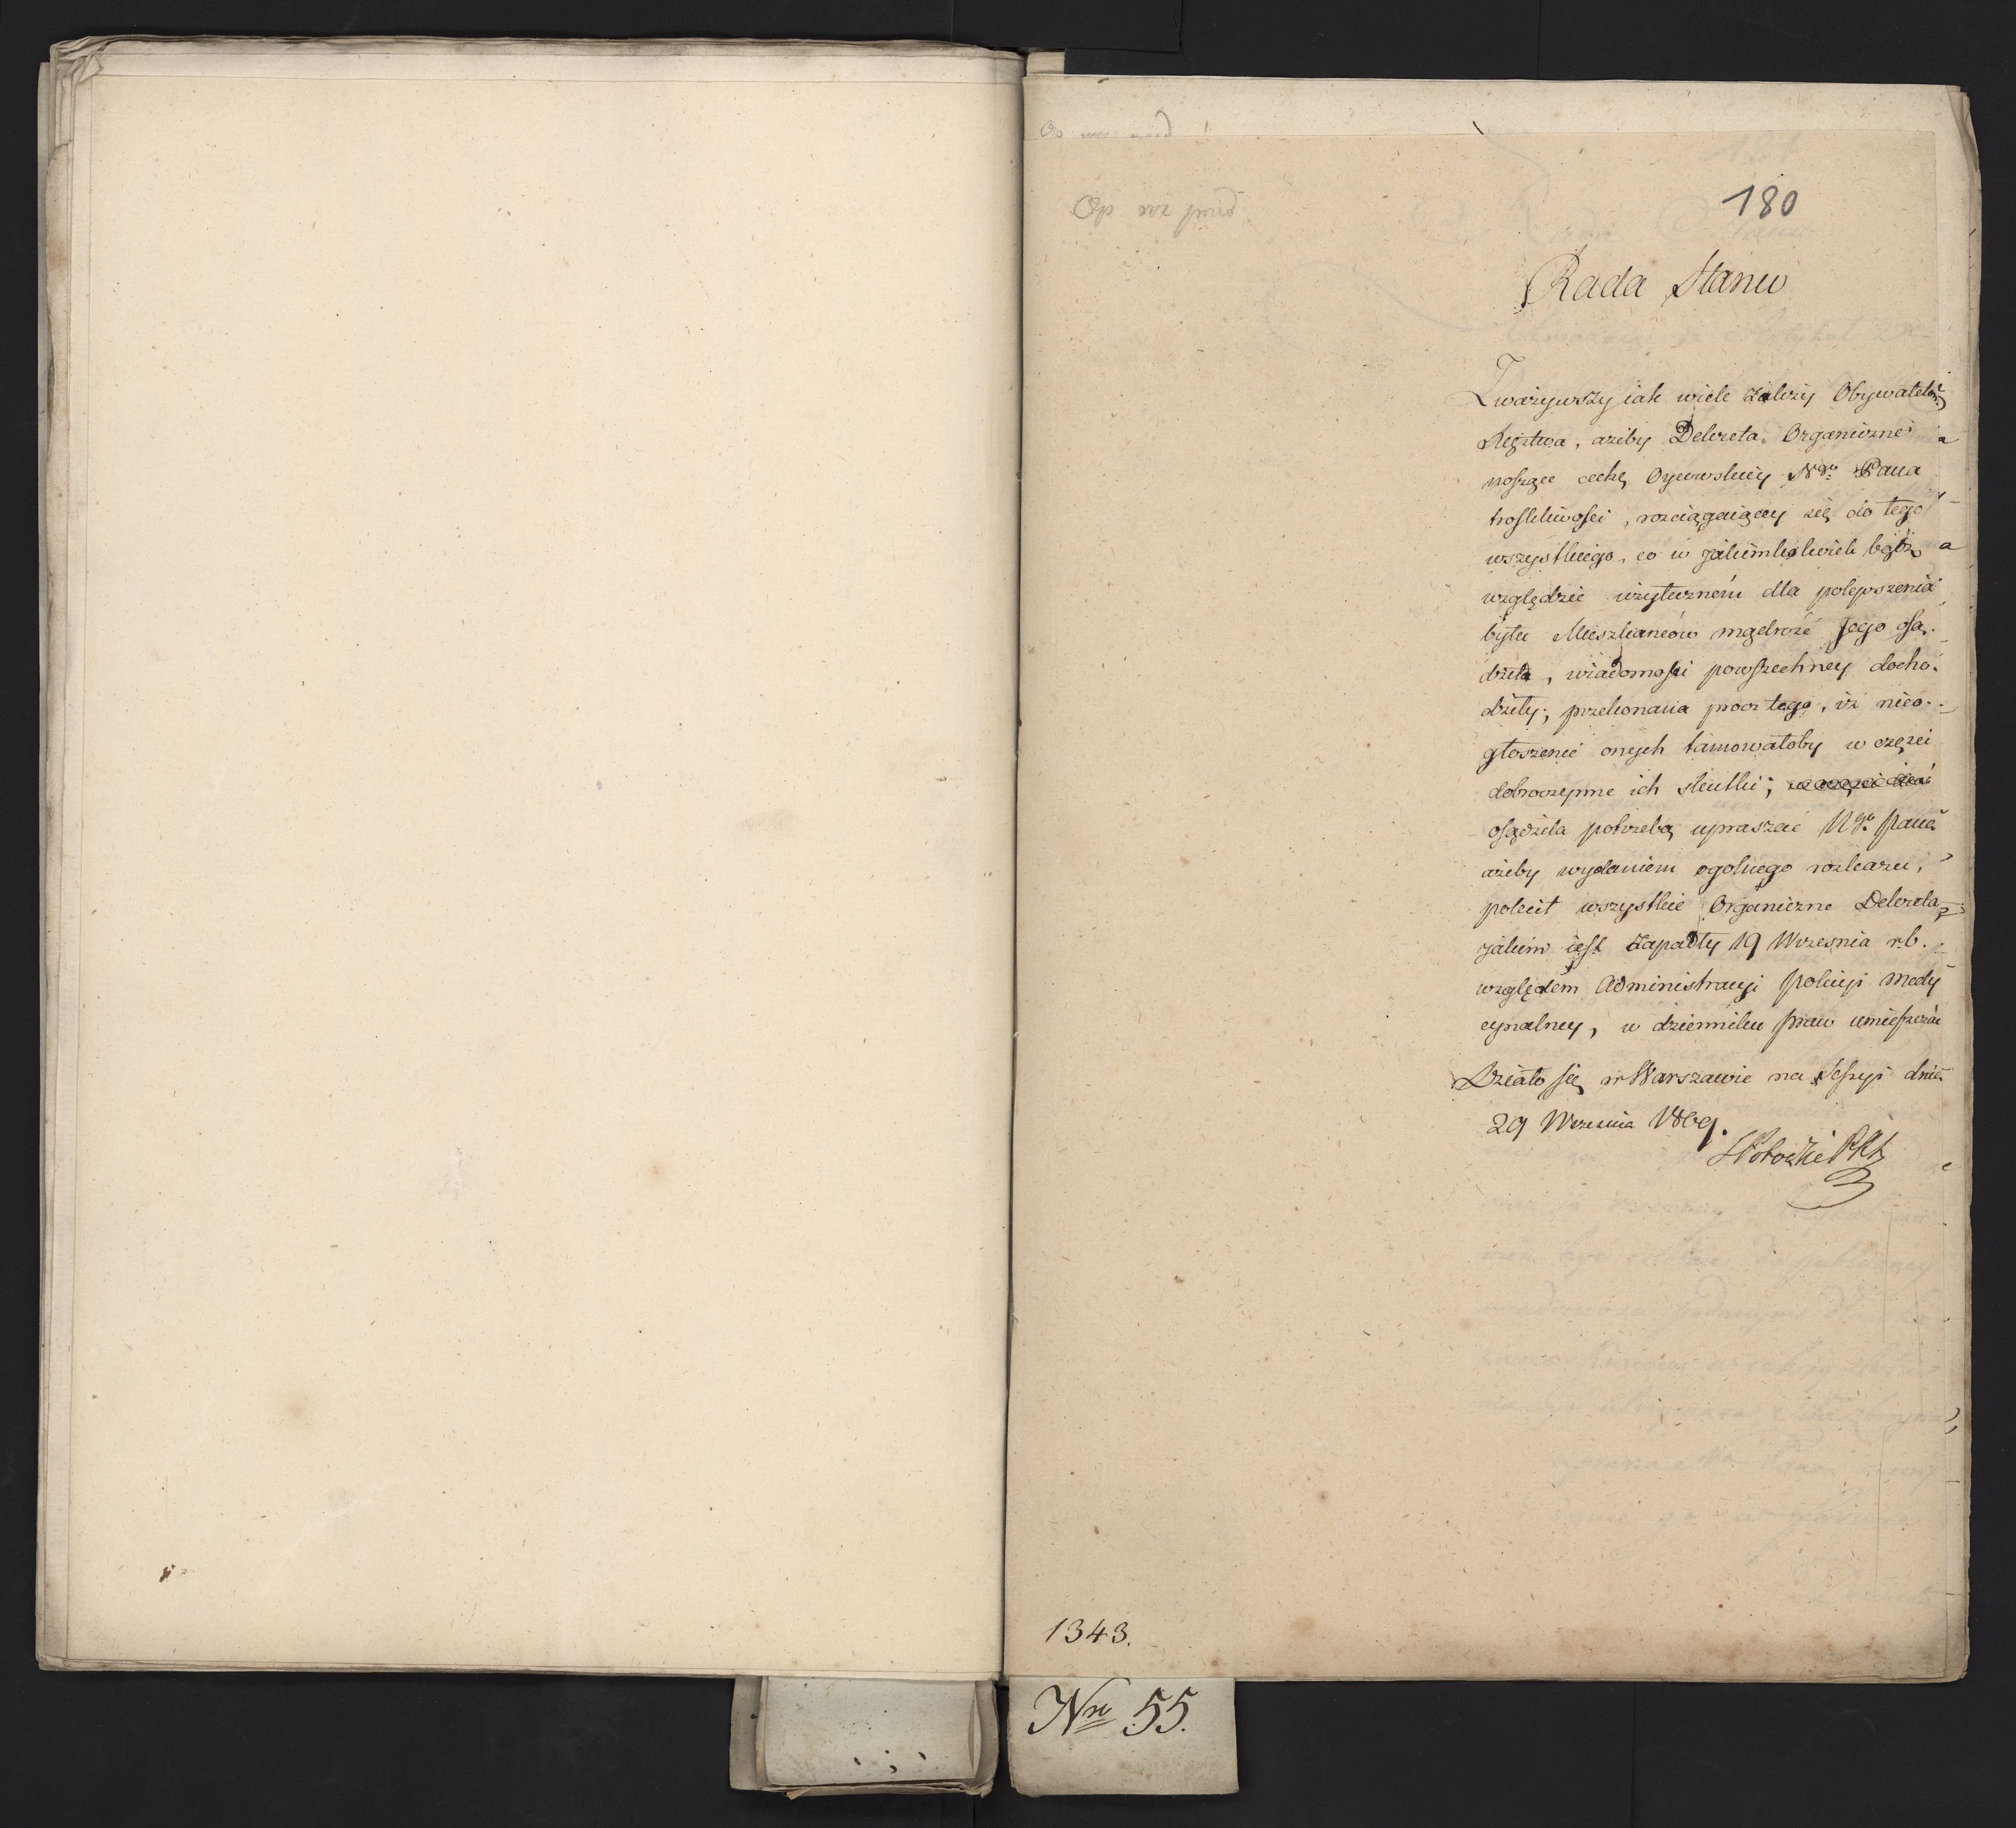 180
Rada Stanu
Zważywszy iak wiele zależy Obywatelōm
Xięztwa, ażeby Dekreta Organiczne
noszące cechę Oycowskiey Ngo Pana
troskliwości, rozciągaiącey się do tego
wszystkiego, co w jakimkolwiek bądź
względzie użytecznem dla polepszenia
bytu Mieszkanców mądrość Jego osą-
dziła, wiadomości powszechney docho-
dziły; przekonana procz tego, iż nieo-
głoszenie onych tamowałoby w części
dobroczynne ich skutki;
osądziła potrzebą upraszać Ngo Pana
ażeby wydaniem ogolnego rozkazu,
polecił wszystkie Organiczne Dekreta,
jakim iest zapadły 19 Wrzesnia r.b.
względem Administracyi Policyi Medy
cynalney, w dzienniku praw umieszczać
Działo się w Warszawie na Sessyi dnia
29 Wrzesnia 1809.
1343.
Nro 55.